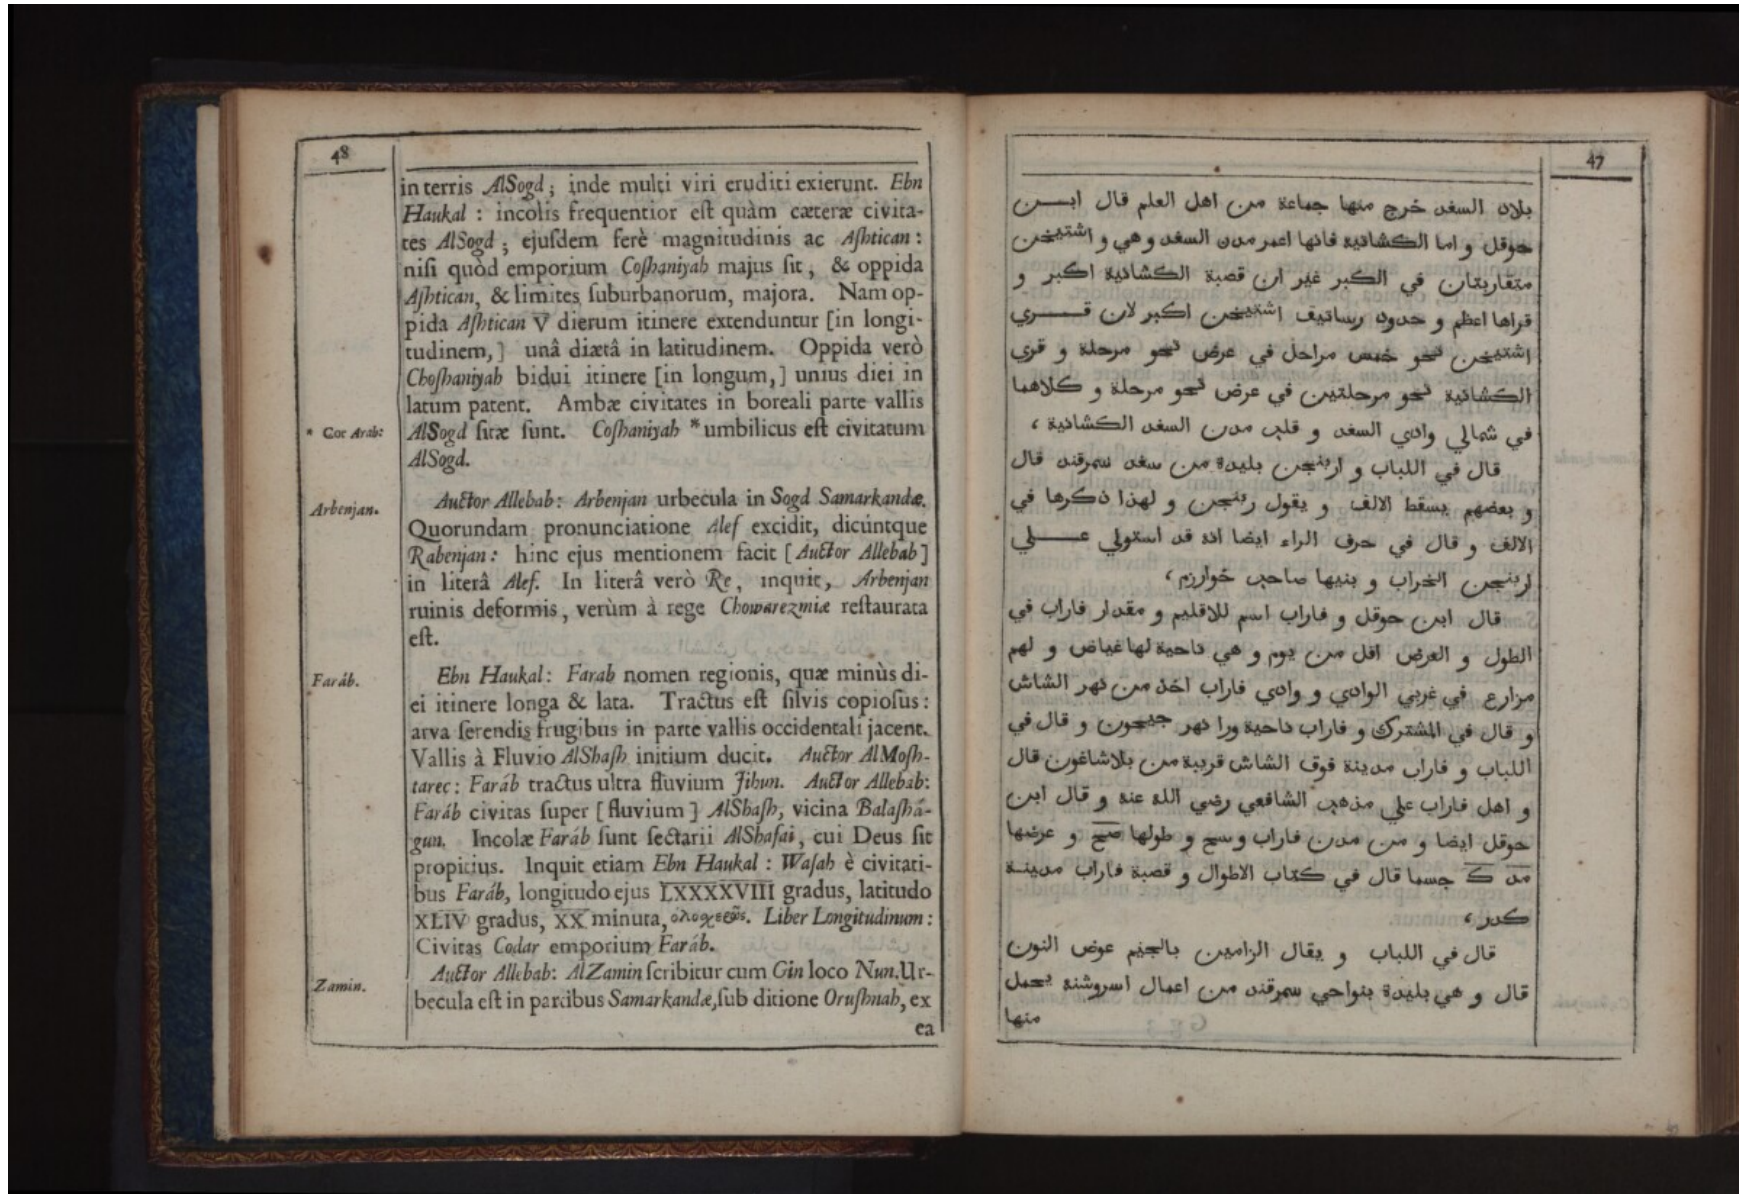 48
in terris AlSogd; inde multi viri eruditi exierunt. Ebn
Haukal: incolis frequentior est quàm cæteræ civita-
tes AlSogd; ejusdem ferè magnitudinis ac Ashtican:
nisi quòd emporium Coshaniyah majus sit, & oppida
Ashtican, & limites suburbanorum, majora. Nam op-
pida Ashtican V dierum itinere extenduntur [in longi-
tudinem,] unâ diætâ in latitudinem. Oppida verò
Choshaniyah bidui itinere [in longum,] unius diei in
latum patent. Ambæ civitates in boreali parte vallis
* Cor Arab:
AlSogd sitæ sunt. Coshaniyah * umbilicus est civitatum
AlSogd.
Arbenjan.
Auctor Allebab: Arbenjan urbecula in Sogd Samarkandæ.
Quorundam pronunciatione Alef excidit, dicúntque
Rabenjan: hinc ejus mentionem facit [Auctor Allebab]
in literâ Alef. In literâ verò Re, inquit, Arbenjan
ruinis deformis, verùm à rege Chowarezmiæ restaurata
est.
Faráb.
Ebn Haukal: Farab nomen regionis, quæ minùs di-
ei itinere longa & lata. Tractus est silvis copiosus:
arva serendis frugibus in parte vallis occidentali jacent.
Vallis à Fluvio AlShash initium ducit. Auctor AlMosh-
tarec: Faráb tractus ultra fluvium Jihun. Auctor Allebab:
Faráb civitas super [fluvium] AlShash, vicina Balashá-
gun. Incolæ Faráb sunt sectarii AlShafai, cui Deus sit
propitius. Inquit etiam Ebn Haukal: Wasah è civitati-
bus Faráb, longitudo ejus LXXXXVIII gradus, latitudo
XLIV gradus, XX minuta, ὁλοχερῶς. Liber Longitudinum:
Civitas Codar emporium Faráb.
Zamin.
Auctor Allebab: AlZamin scribitur cum Gin loco Nun. Ur-
becula est in partibus Samarkandæ, sub ditione Orushnah, ex
ea
47
بلاد السغد خرج منها جماعة من اهل العلم قال ابن
حوقل و اما الكشانية فانها اعمر مدن السغد و هي و اشتيخن
متقاربتان في الكبر غير ان قصبة الكشانية اكبر و
قراها اعظم و حدود رساتيف اشتيخن اكبر لان قري
اشتيخن نحو خمس مراحل في عرض نحو مرحلة و قري
الكشانية نحو مرحلتين في عرض نحو مرحلة و كلاهما
في شمالي وادي السغد و قلب مدن السغد الكشانية ،
قال في اللباب و اربنجن بليدة من سغد سمرقند قال
و بعضهم يسقط الالف و يقول ربنجن و لهذا ذكرها في
الالف و قال في حرف الراء ايضا انه قد استولي علي
اربنجن الخراب و بنيها صاحب خوارزم ،
قال ابن حوقل و فاراب اسم للاقليم و مقدار فاراب في
الطول و العرض اقل من يوم و هي ناحية لها غياض و لهم
مزارع في غربي الوادي و وادي فاراب اخذ من نهر الشاش
و قال في المشترك و فاراب ناحية ورا نهر جيحون و قال في
اللباب و فاراب مدينة فوق الشاش قريبة من بلاشاغون قال
و اهل فاراب علي مذهب الشافعي رضي الله عنه و قال ابن
حوقل ايضا و من مدن فاراب وسيج و طولها صح و عرضها
مد ك جسما قال في كتاب الاطوال و قصبة فاراب مدينة
كدر ،
قال في اللباب و يقال الزامين بالجيم عوض النون
قال و هي بليدة بنواحي سمرقند من اعمال اسروشنة يحمل
منها